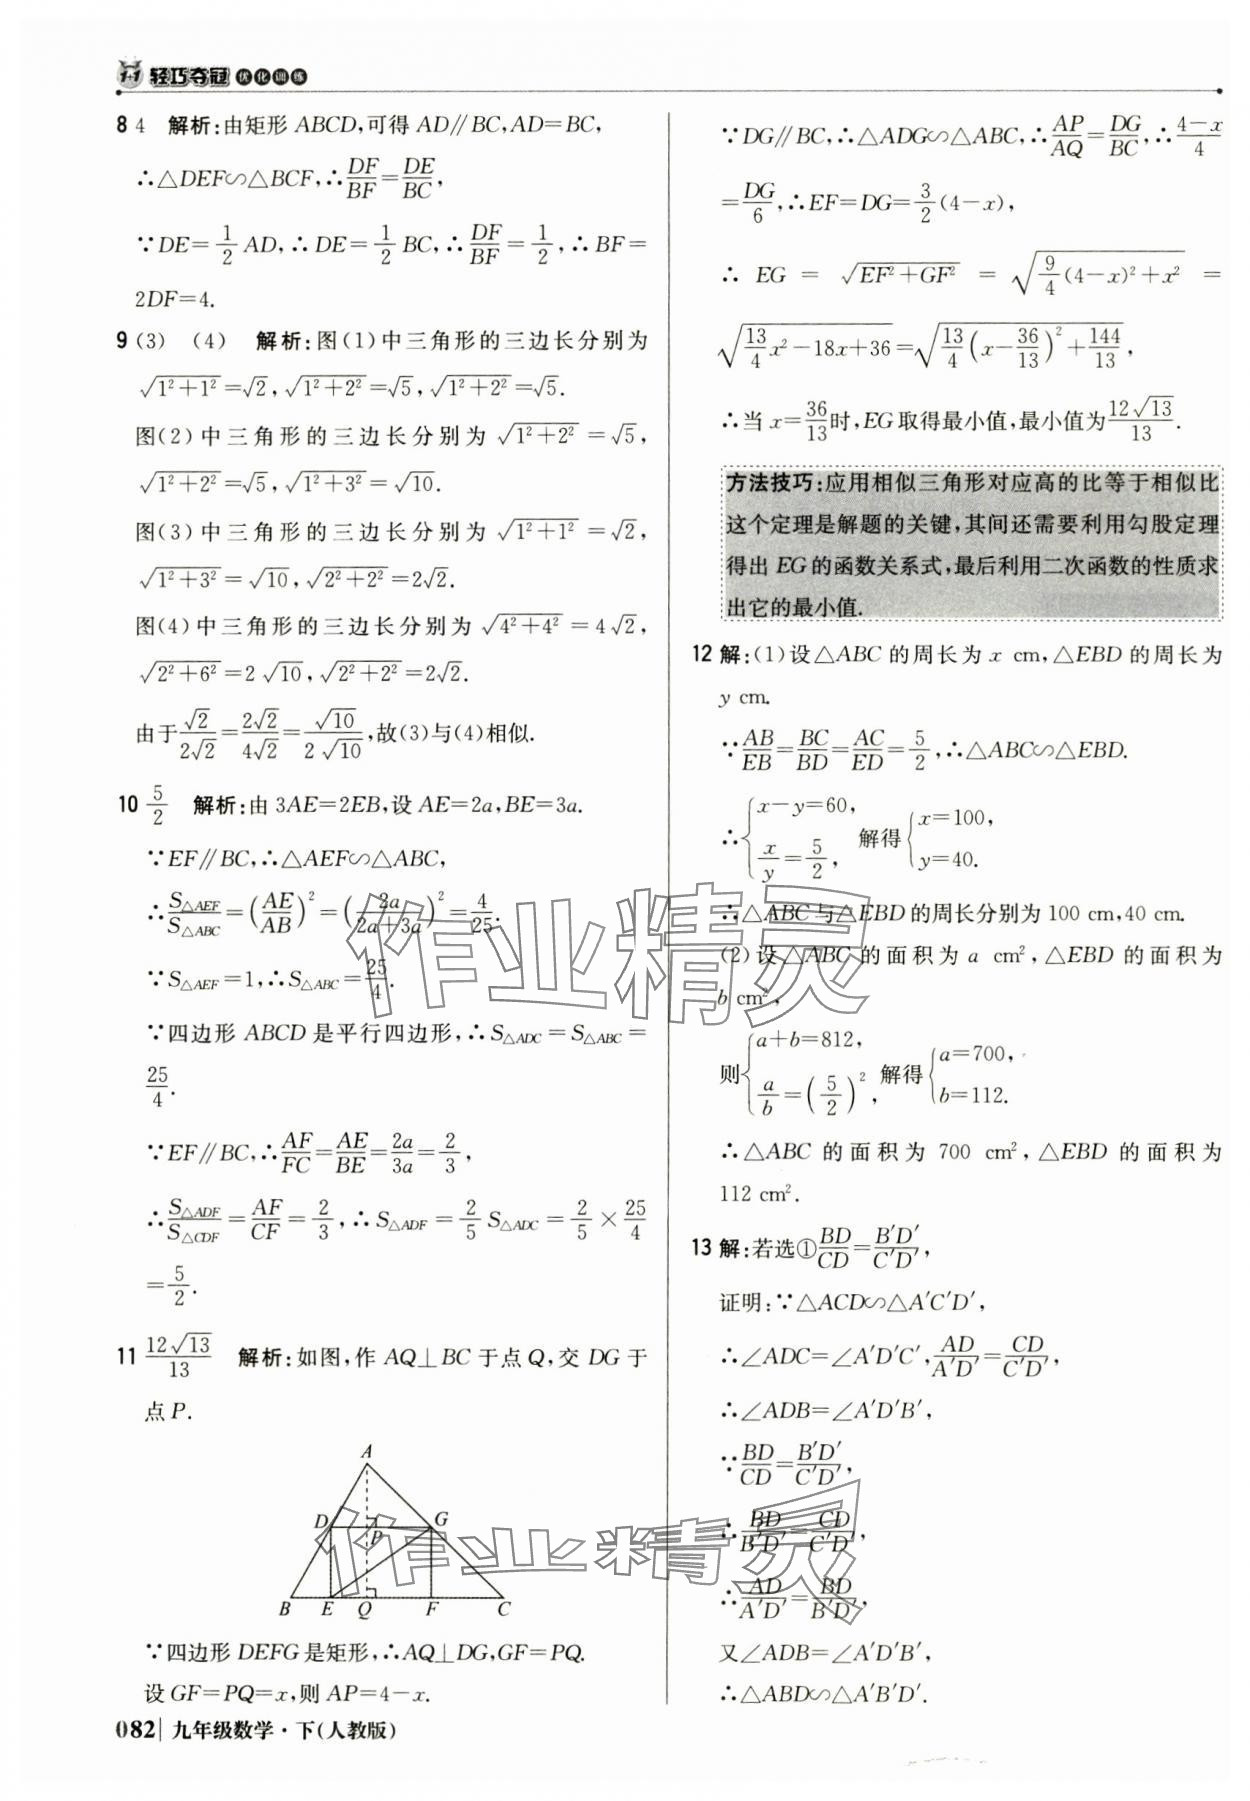 1+1 轻巧夺冠 优化训练
8 4 解析:由矩形 ABCD,可得 AD∥BC,AD=BC,
∴△DEF∽△BCF,∴DF/BF=DE/BC,
∵DE=1/2 AD,∴DE=1/2 BC,∴DF/BF=1/2,∴BF=
2DF=4.
9 (3) (4) 解析:图(1)中三角形的三边长分别为
√(1²+1²)=√2,√(1²+2²)=√5,√(1²+2²)=√5.
图(2)中三角形的三边长分别为 √(1²+2²)=√5,
√(1²+2²)=√5,√(1²+3²)=√10.
图(3)中三角形的三边长分别为√(1²+1²)=√2,
√(1²+3²)=√10,√(2²+2²)=2√2.
图(4)中三角形的三边长分别为√(4²+4²)=4√2,
√(2²+6²)=2√10,√(2²+2²)=2√2.
由于√2/2√2=2√2/4√2=√10/2√10,故(3)与(4)相似.
10 5/2 解析:由 3AE=2EB,设 AE=2a,BE=3a.
∵EF∥BC,∴△AEF∽△ABC,
∴S△AEF/S△ABC=(AE/AB)²=(2a/2a+3a)²=4/25.
∵S△AEF=1,∴S△ABC=25/4.
∵四边形 ABCD 是平行四边形,∴S△ADC=S△ABC=
25/4.
∵EF∥BC,∴AF/FC=AE/BE=2a/3a=2/3,
∴S△ADF/S△CDF=AF/CF=2/3,∴S△ADF=2/5 S△ADC=2/5×25/4
=5/2.
11 12√13/13 解析:如图,作 AQ⊥BC 于点 Q,交 DG 于
点 P.
A
D P G
B E Q F C
∵四边形 DEFG 是矩形,∴AQ⊥DG,GF=PQ.
设 GF=PQ=x,则 AP=4-x.
∵DG∥BC,∴△ADG∽△ABC,∴AP/AQ=DG/BC,∴4-x/4
=DG/6,∴EF=DG=3/2(4-x),
∴ EG = √(EF²+GF²) = √(9/4(4-x)²+x²) =
√(13/4x²-18x+36)=√(13/4(x-36/13)²+144/13),
∴当 x=36/13时,EG 取得最小值,最小值为12√13/13.
方法技巧:应用相似三角形对应高的比等于相似比
这个定理是解题的关键,其间还需要利用勾股定理
得出 EG 的函数关系式,最后利用二次函数的性质求
出它的最小值.
12 解:(1)设△ABC 的周长为 x cm,△EBD 的周长为
y cm.
∵AB/EB=BC/BD=AC/ED=5/2,∴△ABC∽△EBD.
∴{x-y=60, x/y=5/2, 解得{x=100, y=40.
∴△ABC与△EBD的周长分别为 100 cm,40 cm.
(2)设△ABC 的面积为 a cm²,△EBD 的面积为
b cm²,
则{a+b=812, a/b=(5/2)², 解得{a=700, b=112.
∴△ABC 的面积为 700 cm²,△EBD 的面积为
112 cm².
13 解:若选①BD/CD=B′D′/C′D′,
证明:∵△ACD∽△A′C′D′,
∴∠ADC=∠A′D′C′,AD/A′D′=CD/C′D′,
∴∠ADB=∠A′D′B′,
∵BD/CD=B′D′/C′D′,
∴BD/B′D′=CD/C′D′,
∴AD/A′D′=BD/B′D′,
又∠ADB=∠A′D′B′,
∴△ABD∽△A′B′D′.
作业精灵
作业精灵
082 九年级数学·下(人教版)